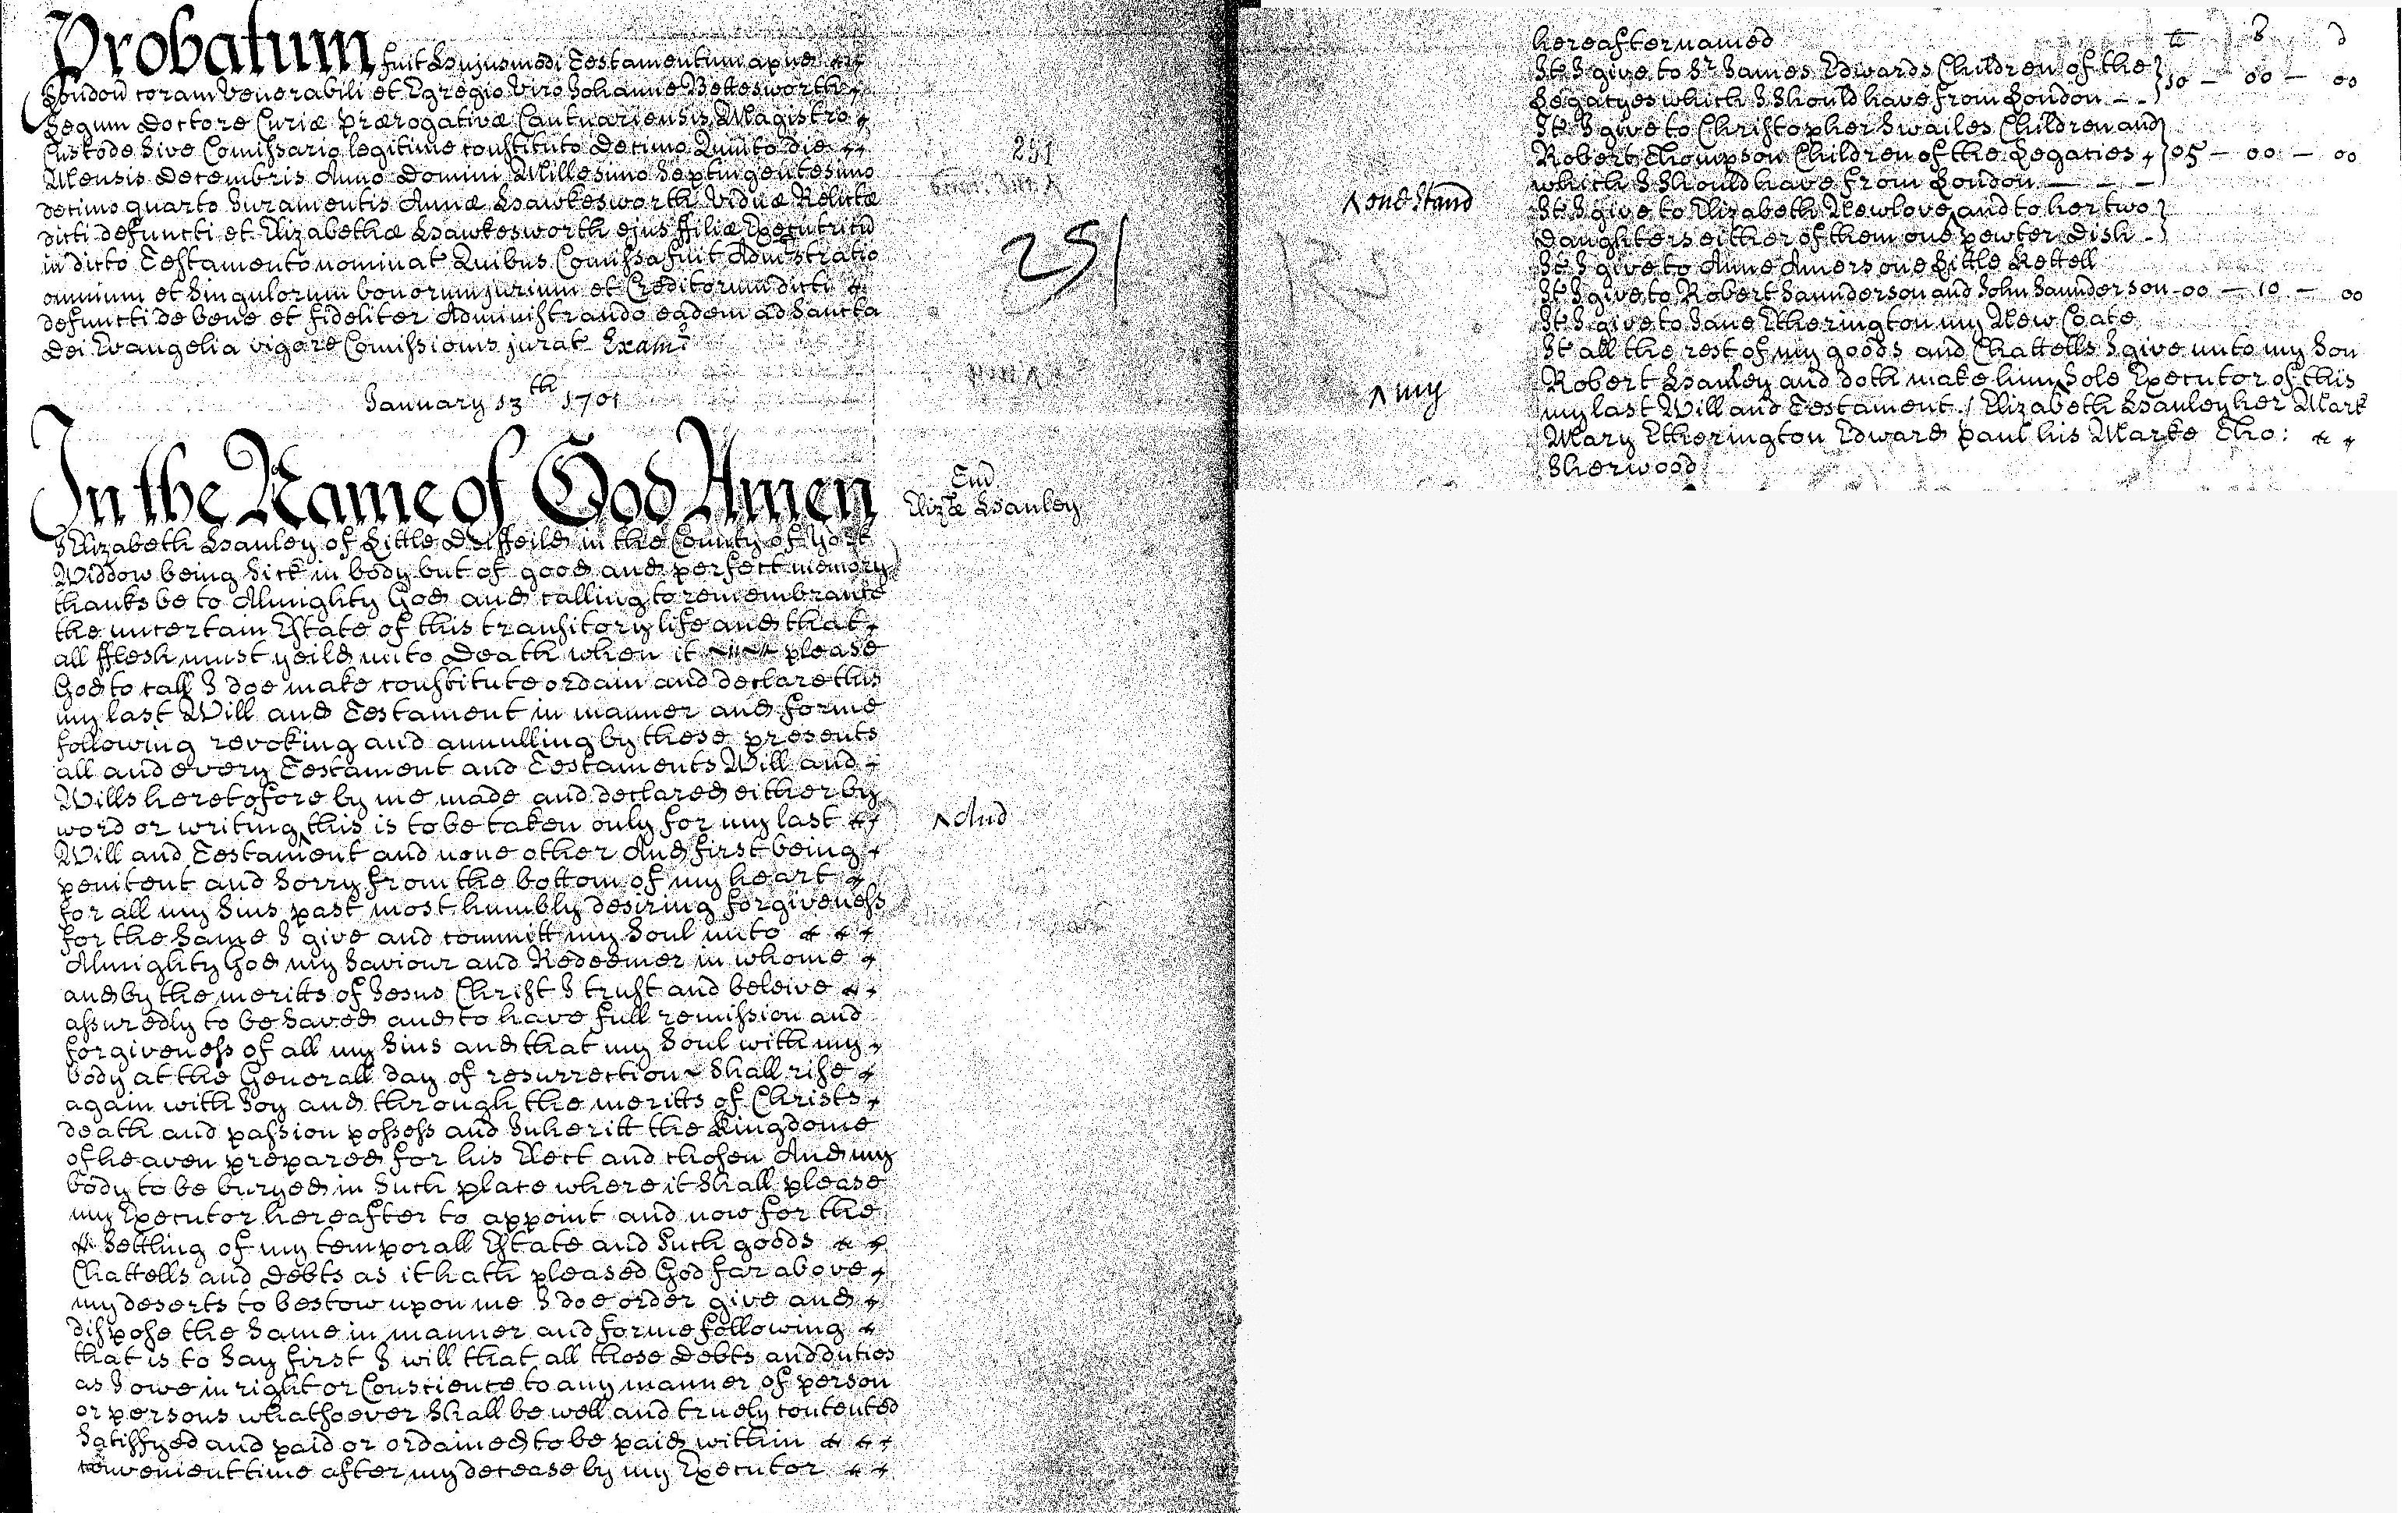 Probatum fuit hujusmodi Testamentum apud
London coram Venerabili et Egregio Viro Johanne Bettesworth
Legum Doctore Curiæ Prærogativæ Cantuariensis Magistro
Custode sive Comissario legitime constituto Decimo Quinto die
Mensis Decembris Anno Domini Millesimo Septingentesimo
decimo quarto Juramentis Annæ Hawkesworth Viduæ Relictæ
dicti defuncti et Elizabethæ Hawkesworth ejus ffiliæ Executricu
in dicto Testamento nominat Quibus Comissa fuit Admistratio
omnium et Singulorum bonorum jurium et Creditorum dicti
defuncti de bene et fideliter Administrando eadem ad Sancta
Dei Evangelia vigore Comissionis jurat Examr
251
251
January 13th 1701
In the Name of God Amen
End
Elizæ Hanley
I Elizabeth Hanley of Little Driffeild in the County of York
Widdow being Sick in body but of good and perfect memory
thanks be to Almighty God and calling to remembrance
the uncertain Estate of this transitory life and that
all fflesh must yeild unto Death when it please
God to call I doe make constitute ordain and declare this
my last Will and Testament in manner and forme
following revoking and annulling by these presents
all and every Testament and Testaments Will and
Wills heretofore by me made and declared either by
word or writing ‸ this is to be taken only for my last
‸ And
Will and Testament and none other And first being
penitent and Sorry from the bottom of my heart
for all my Sins past most humbly desiring forgiveness
for the Same I give and committ my Soul unto
Almighty God my Saviour and Redeemer in whome
and by the meritts of Jesus Christ I trust and beleive
assuredly to be Saved and to have full remission and
forgiveness of all my Sins and that my Soul with my
body at the Generall day of resurrection Shall rise
again with Joy and through the meritts of Christs
death and passion possess and Inheritt the Kingdome
of heaven prepared for his Elect and chosen And my
body to be buryed in Such place where it Shall please
my Executor hereafter to appoint and now for the
Settling of my temporall Estate and Such goods
Chattells and Debts as it hath pleased God far above
my deserts to bestow upon me I doe order give and
dispose the Same in manner and forme following
that is to Say first I will that all those Debts and duties
as I owe in right or Conscience to any manner of person
or persons whatsoever Shall be well and truely contented
Satisfyed and paid or ordained to be paid within
convenient time after my decease by my Executor
hereafter named £ S d
It I give to Sr James Edwards Children of the
Legacyes which I Should have from London 10 - 00 - 00
It I give to Christopher Swailes Children and
Robert Thompson Children of the Legacies 05 - 00 - 00
which I Should have from London
‸ one Stand
It I give to Elizabeth Newlove ‸ and to her two
Daughters either of them one pewter Dish
It I give to Anne Amers one Little Kettell
It I give to Robert Saunderson and John Saunderson - 00 - 10 - 00
It I give to Jane Etherington my New Coate
It all the rest of my goods and Chattells I give unto my Son
Robert Hanley and doth make him ‸ Sole Executor of this
‸ my
my last Will and Testament / Elizabeth Hanley her Mark
Mary Etherington Edward Paul his Marke Tho:
Sherwood